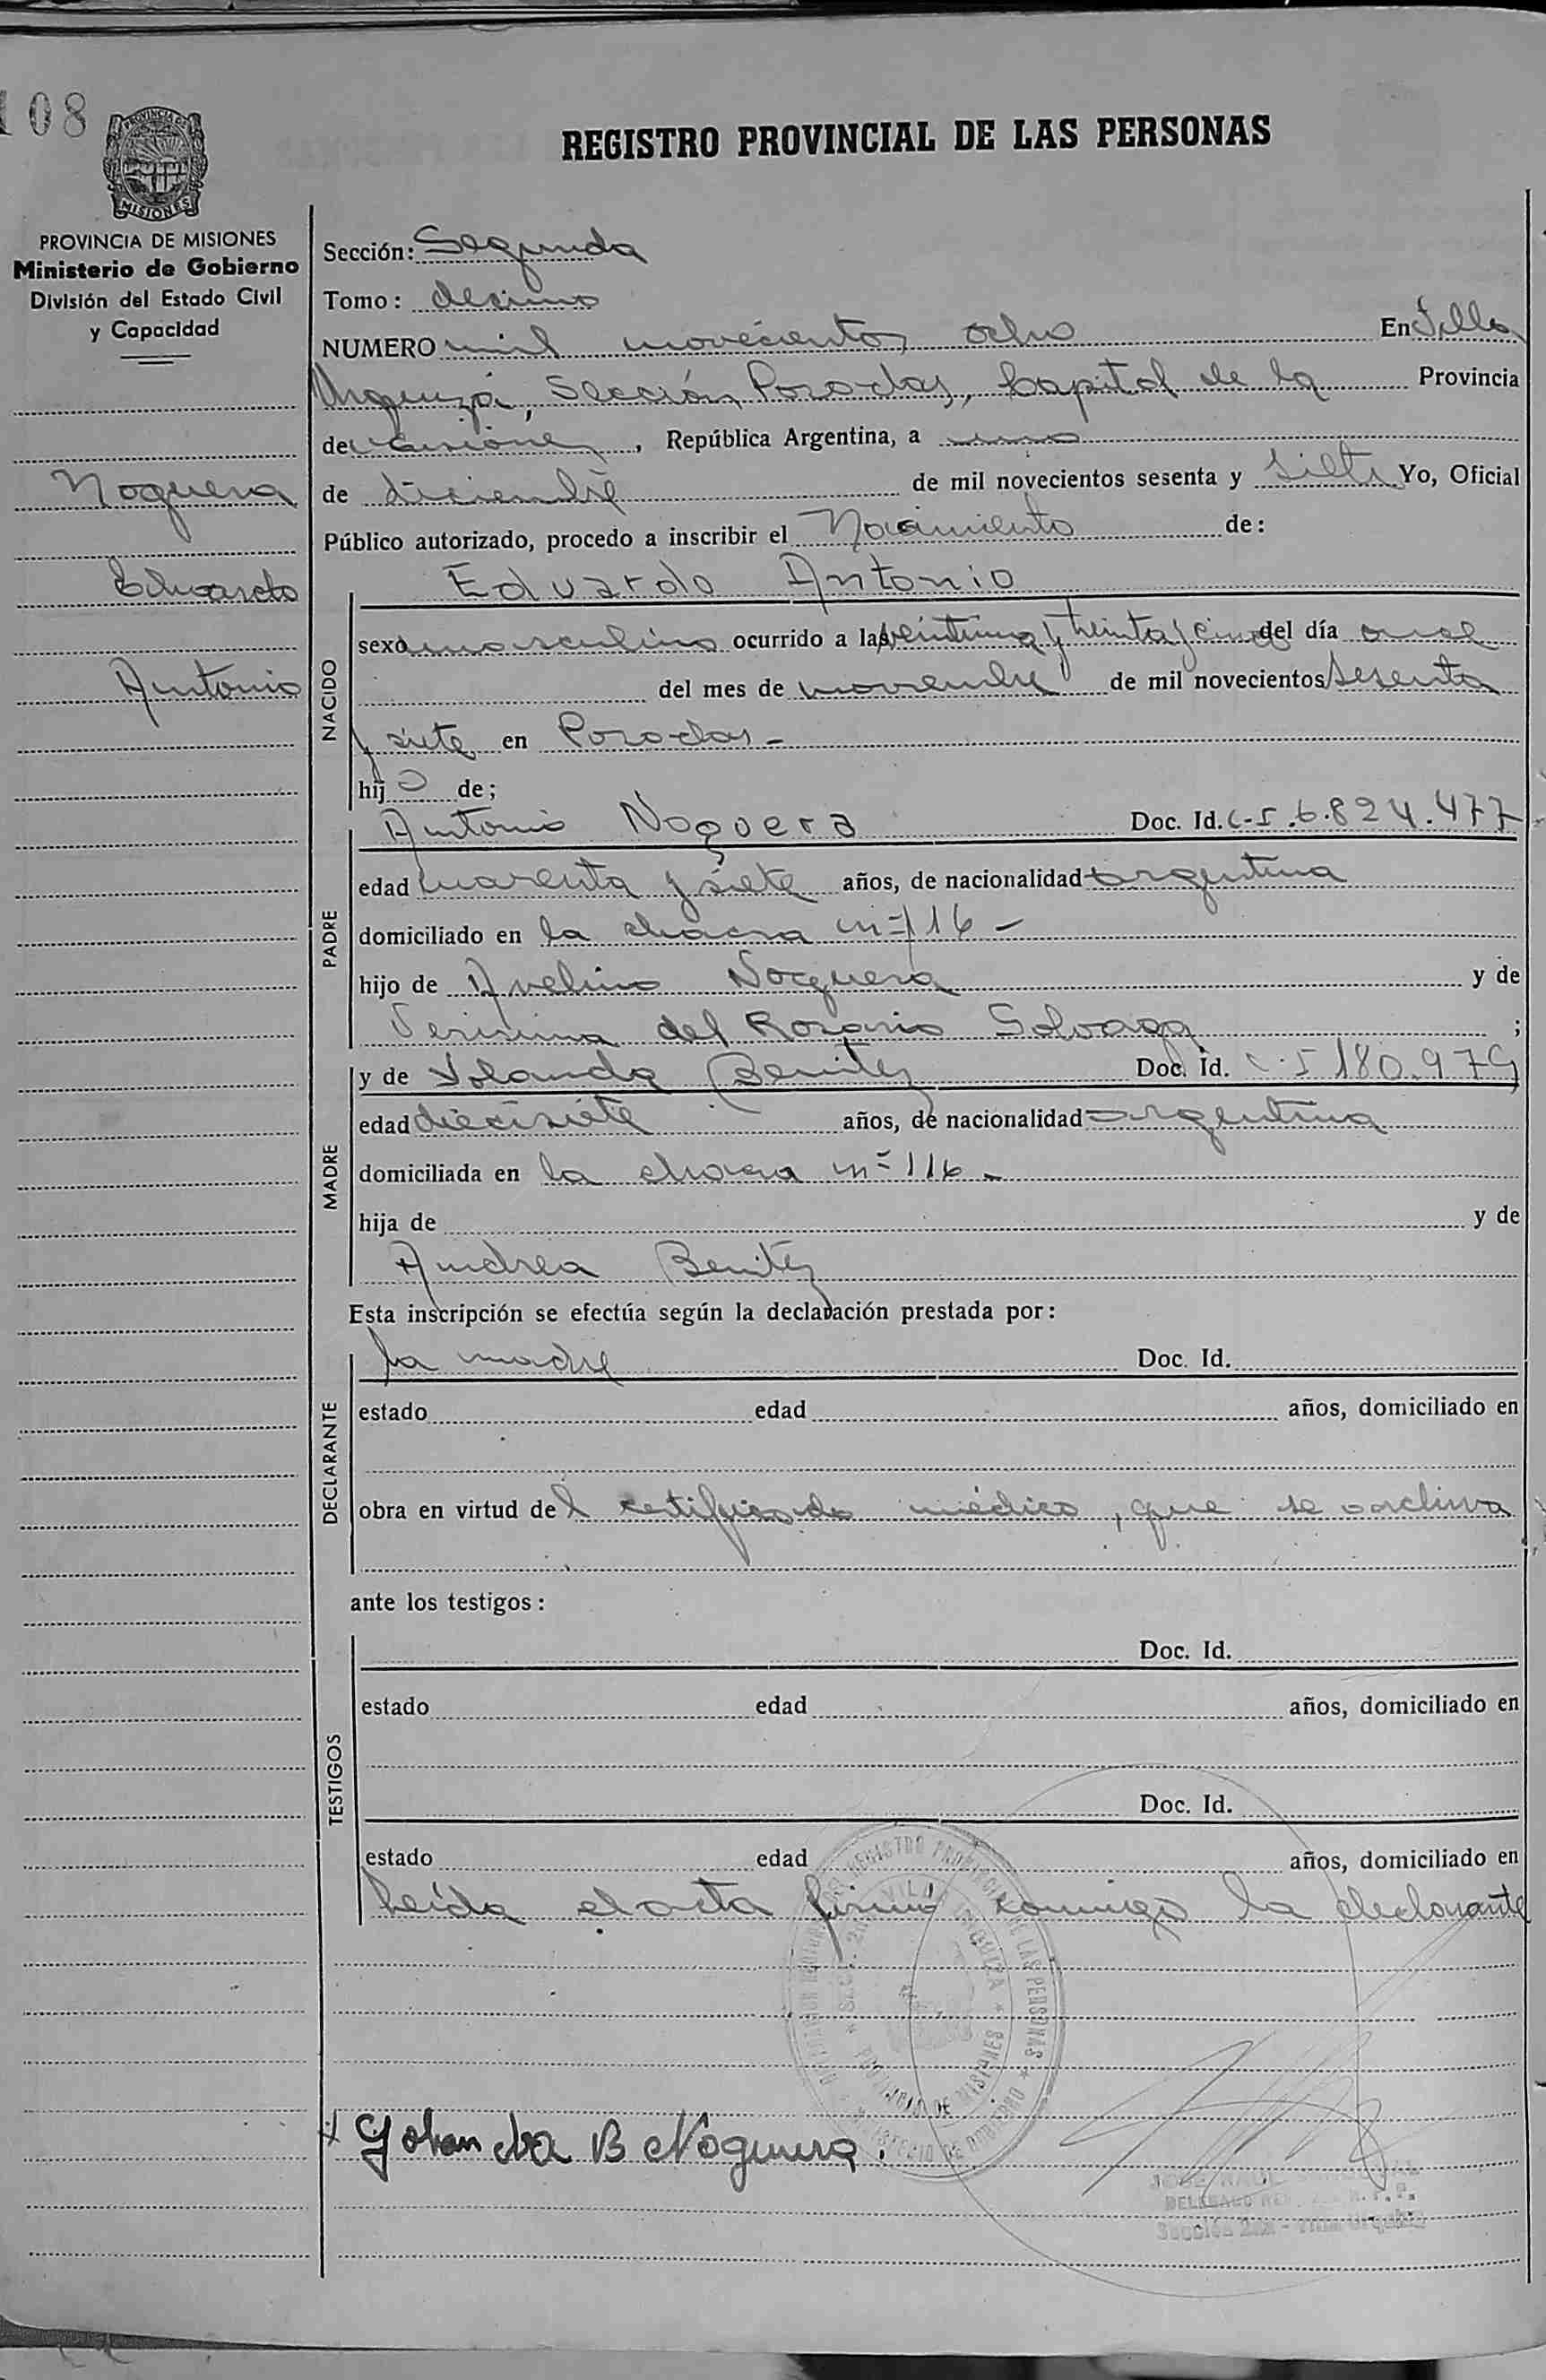 108
PROVINCIA DE
MISIONES
REGISTRO PROVINCIAL DE LAS PERSONAS
PROVINCIA DE MISIONES
Ministerio de Gobierno
División del Estado Civil
y Capacidad
Noguera
Eduardo
Antonio
Sección: Segunda
Tomo: decimo
NUMERO mil novecientos ocho En Villa
Urquiza, Sección Posadas, Capital de la Provincia
de Misiones, República Argentina, a uno
de diciembre de mil novecientos sesenta y siete Yo, Oficial
Público autorizado, procedo a inscribir el Nacimiento de:
NACIDO
Eduardo Antonio
sexo masculino ocurrido a las veintiuna y treinta y cinco del día once
del mes de noviembre de mil novecientos sesenta
y siete en Posadas -
hijo de;
PADRE
Antonio Noguera Doc. Id. C-I.6.824.477
edad cuarenta y siete años, de nacionalidad argentina
domiciliado en la chacra nº 116 -
hijo de Avelino Noguera y de
del Rosario ;
MADRE
y de Yolanda Benitez Doc. Id. C-I 180.979
edad diecisiete años, de nacionalidad argentina
domiciliada en la chacra nº 116 -
hija de y de
Andrea Benitez
Esta inscripción se efectúa según la declaración prestada por:
DECLARANTE
la madre Doc. Id.
estado edad años, domiciliado en
obra en virtud del certificado médico, que se archiva
ante los testigos:
TESTIGOS
Doc. Id.
estado edad años, domiciliado en
Doc. Id.
estado edad años, domiciliado en
Leída el acta firma conmigo la declarante
REGISTRO PROVINCIAL DE LAS PERSONAS
VILLA URQUIZA
PROVINCIA DE MISIONES
MINISTERIO DE GOBIERNO
Yolanda B Noguera.
JOSE RAUL
DELEGADO R. P. P.
Sección 2da - Villa Urquiza